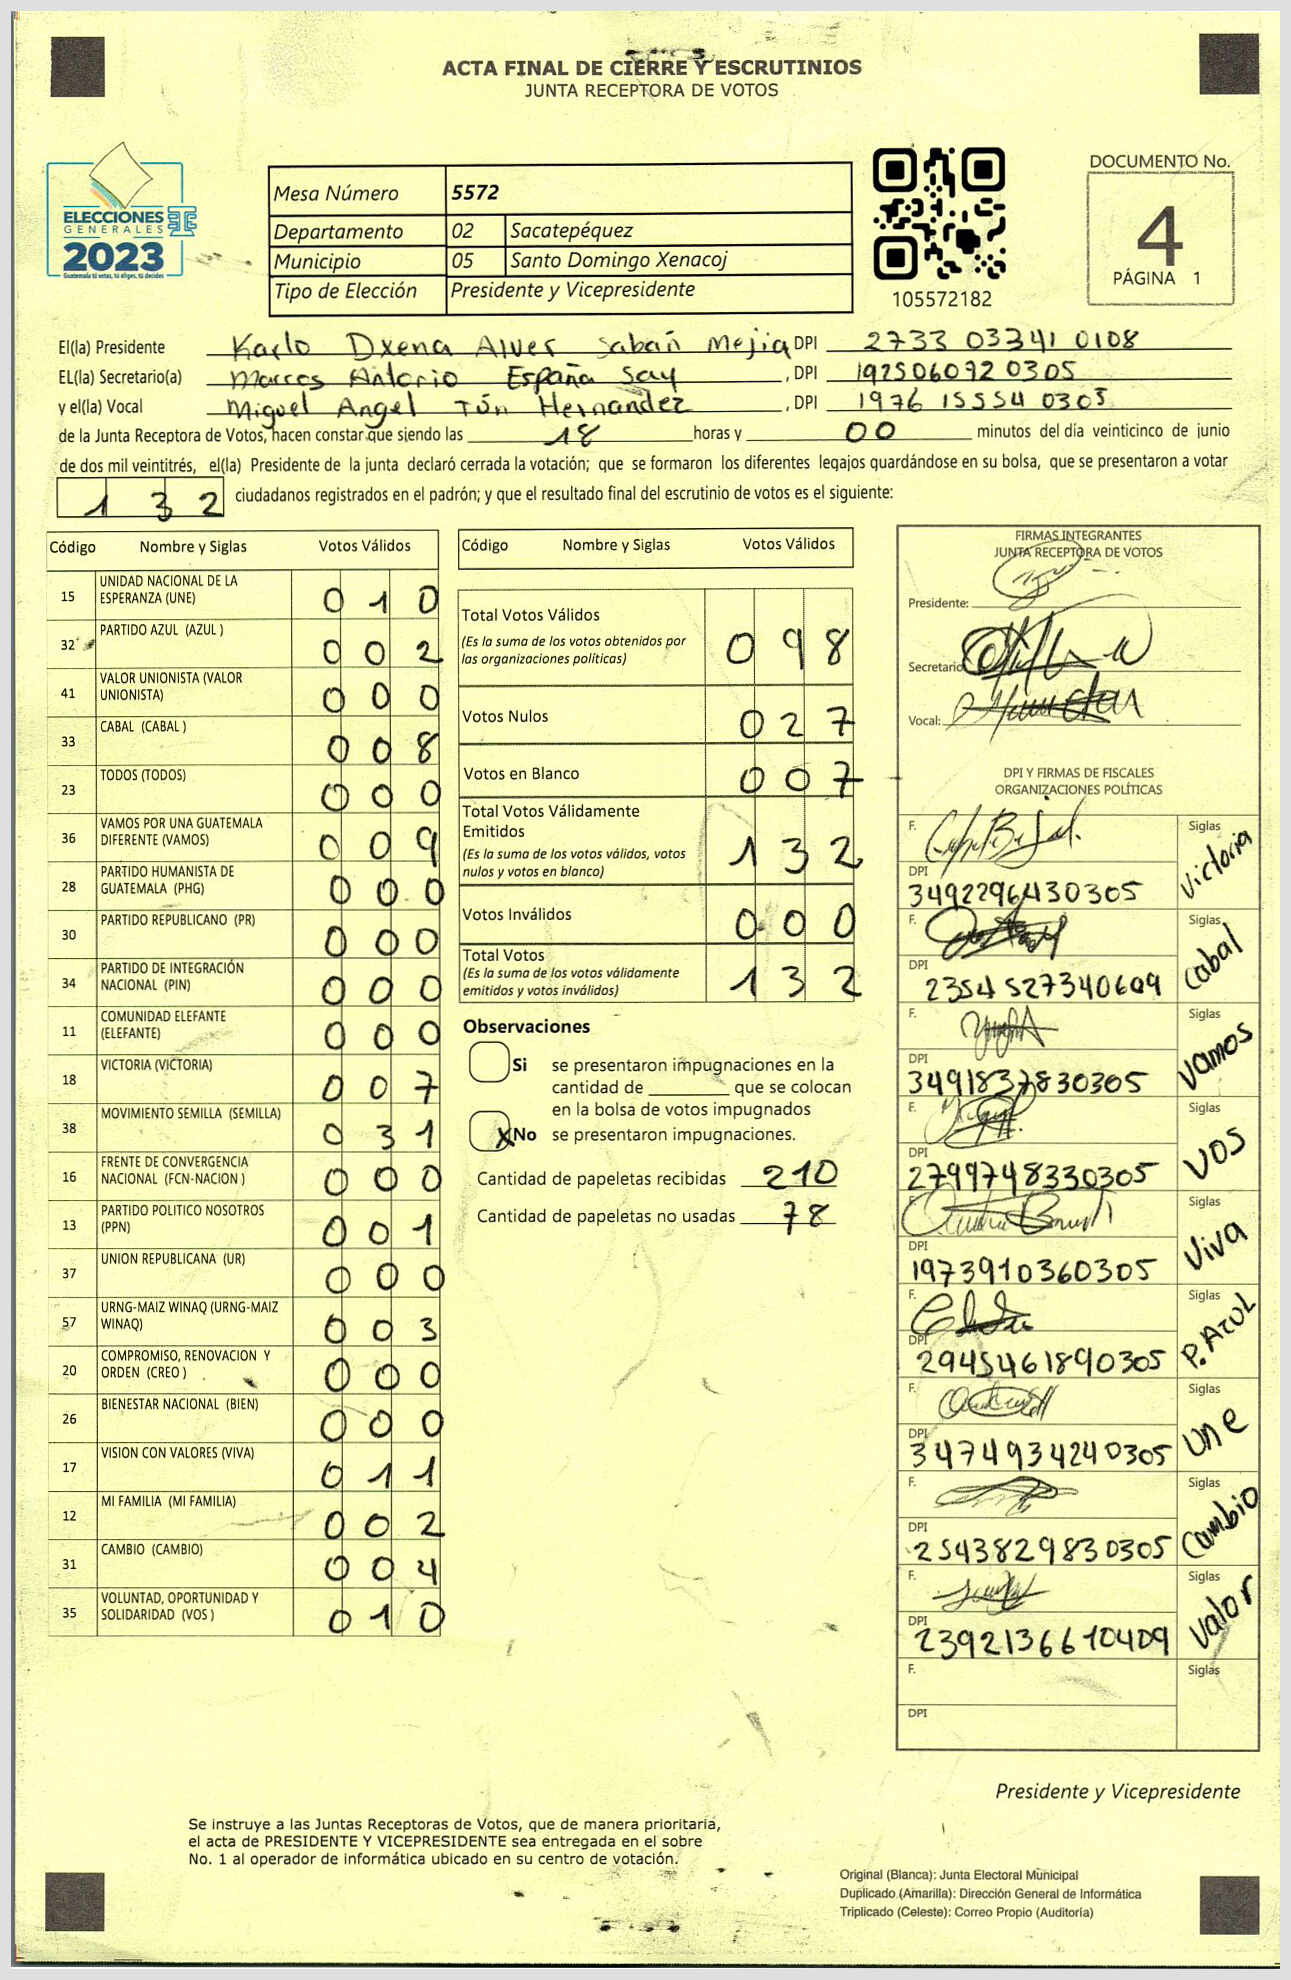 ACTA FINAL DE CIERRE Y ESCRUTINIOS
JUNTA RECEPTORA DE VOTOS
ELECCIONES
GENERALES
2023
Guatemala tú votas, tú eliges, tú decides
Mesa Número 5572
Departamento 02 Sacatepéquez
Municipio 05 Santo Domingo Xenacoj
Tipo de Elección Presidente y Vicepresidente
105572182
DOCUMENTO No.
4
PÁGINA 1
El(la) Presidente Karlo Dxena Alver Sabañ Mejia DPI 2733 03341 0108
EL(la) Secretario(a) Marcos Antonio España Say, DPI 192506072 0305
y el(la) Vocal Miguel Angel Tún Hernandez, DPI 1976 15554 0305
de la Junta Receptora de Votos, hacen constar que siendo las 18 horas y 00 minutos del día veinticinco de junio
de dos mil veintitrés, el(la) Presidente de la junta declaró cerrada la votación; que se formaron los diferentes legajos guardándose en su bolsa, que se presentaron a votar
132 ciudadanos registrados en el padrón; y que el resultado final del escrutinio de votos es el siguiente:
Código Nombre y Siglas Votos Válidos
15 UNIDAD NACIONAL DE LA ESPERANZA (UNE) 010
32 PARTIDO AZUL (AZUL ) 002
41 VALOR UNIONISTA (VALOR UNIONISTA) 000
33 CABAL (CABAL ) 008
23 TODOS (TODOS) 000
36 VAMOS POR UNA GUATEMALA DIFERENTE (VAMOS) 009
28 PARTIDO HUMANISTA DE GUATEMALA (PHG) 000
30 PARTIDO REPUBLICANO (PR) 000
34 PARTIDO DE INTEGRACIÓN NACIONAL (PIN) 000
11 COMUNIDAD ELEFANTE (ELEFANTE) 000
18 VICTORIA (VICTORIA) 007
38 MOVIMIENTO SEMILLA (SEMILLA) 031
16 FRENTE DE CONVERGENCIA NACIONAL (FCN-NACION ) 000
13 PARTIDO POLITICO NOSOTROS (PPN) 001
37 UNION REPUBLICANA (UR) 000
57 URNG-MAIZ WINAQ (URNG-MAIZ WINAQ) 003
20 COMPROMISO, RENOVACION Y ORDEN (CREO ) 000
26 BIENESTAR NACIONAL (BIEN) 000
17 VISION CON VALORES (VIVA) 011
12 MI FAMILIA (MI FAMILIA) 002
31 CAMBIO (CAMBIO) 004
35 VOLUNTAD, OPORTUNIDAD Y SOLIDARIDAD (VOS ) 010
Código Nombre y Siglas Votos Válidos
Total Votos Válidos 098
(Es la suma de los votos obtenidos por
las organizaciones políticas)
Votos Nulos 027
Votos en Blanco 007
Total Votos Válidamente
Emitidos 132
(Es la suma de los votos válidos, votos
nulos y votos en blanco)
Votos Inválidos 000
Total Votos 132
(Es la suma de los votos válidamente
emitidos y votos inválidos)
Observaciones
Si se presentaron impugnaciones en la
cantidad de ________ que se colocan
en la bolsa de votos impugnados
X No se presentaron impugnaciones.
Cantidad de papeletas recibidas 210
Cantidad de papeletas no usadas 78
FIRMAS INTEGRANTES
JUNTA RECEPTORA DE VOTOS
Presidente:
Secretario
Vocal:
DPI Y FIRMAS DE FISCALES
ORGANIZACIONES POLÍTICAS
F. Siglas Victoria
DPI 3492296430305
F. Siglas Cabal
DPI 2354527340609
F. Siglas Vamos
DPI 3491837830305
F. Siglas VOS
DPI 2799748330305
F. Siglas Viva
DPI 1973910360305
F. Siglas P. AZUL
DPI 2945461890305
F. Siglas Une
DPI 3474934240305
F. Siglas Cambio
DPI 2543829830305
F. Siglas Valor
DPI 2392136610409
F. Siglas
DPI
Presidente y Vicepresidente
Se instruye a las Juntas Receptoras de Votos, que de manera prioritaria,
el acta de PRESIDENTE Y VICEPRESIDENTE sea entregada en el sobre
No. 1 al operador de informática ubicado en su centro de votación.
Original (Blanca): Junta Electoral Municipal
Duplicado (Amarilla): Dirección General de Informática
Triplicado (Celeste): Correo Propio (Auditoría)